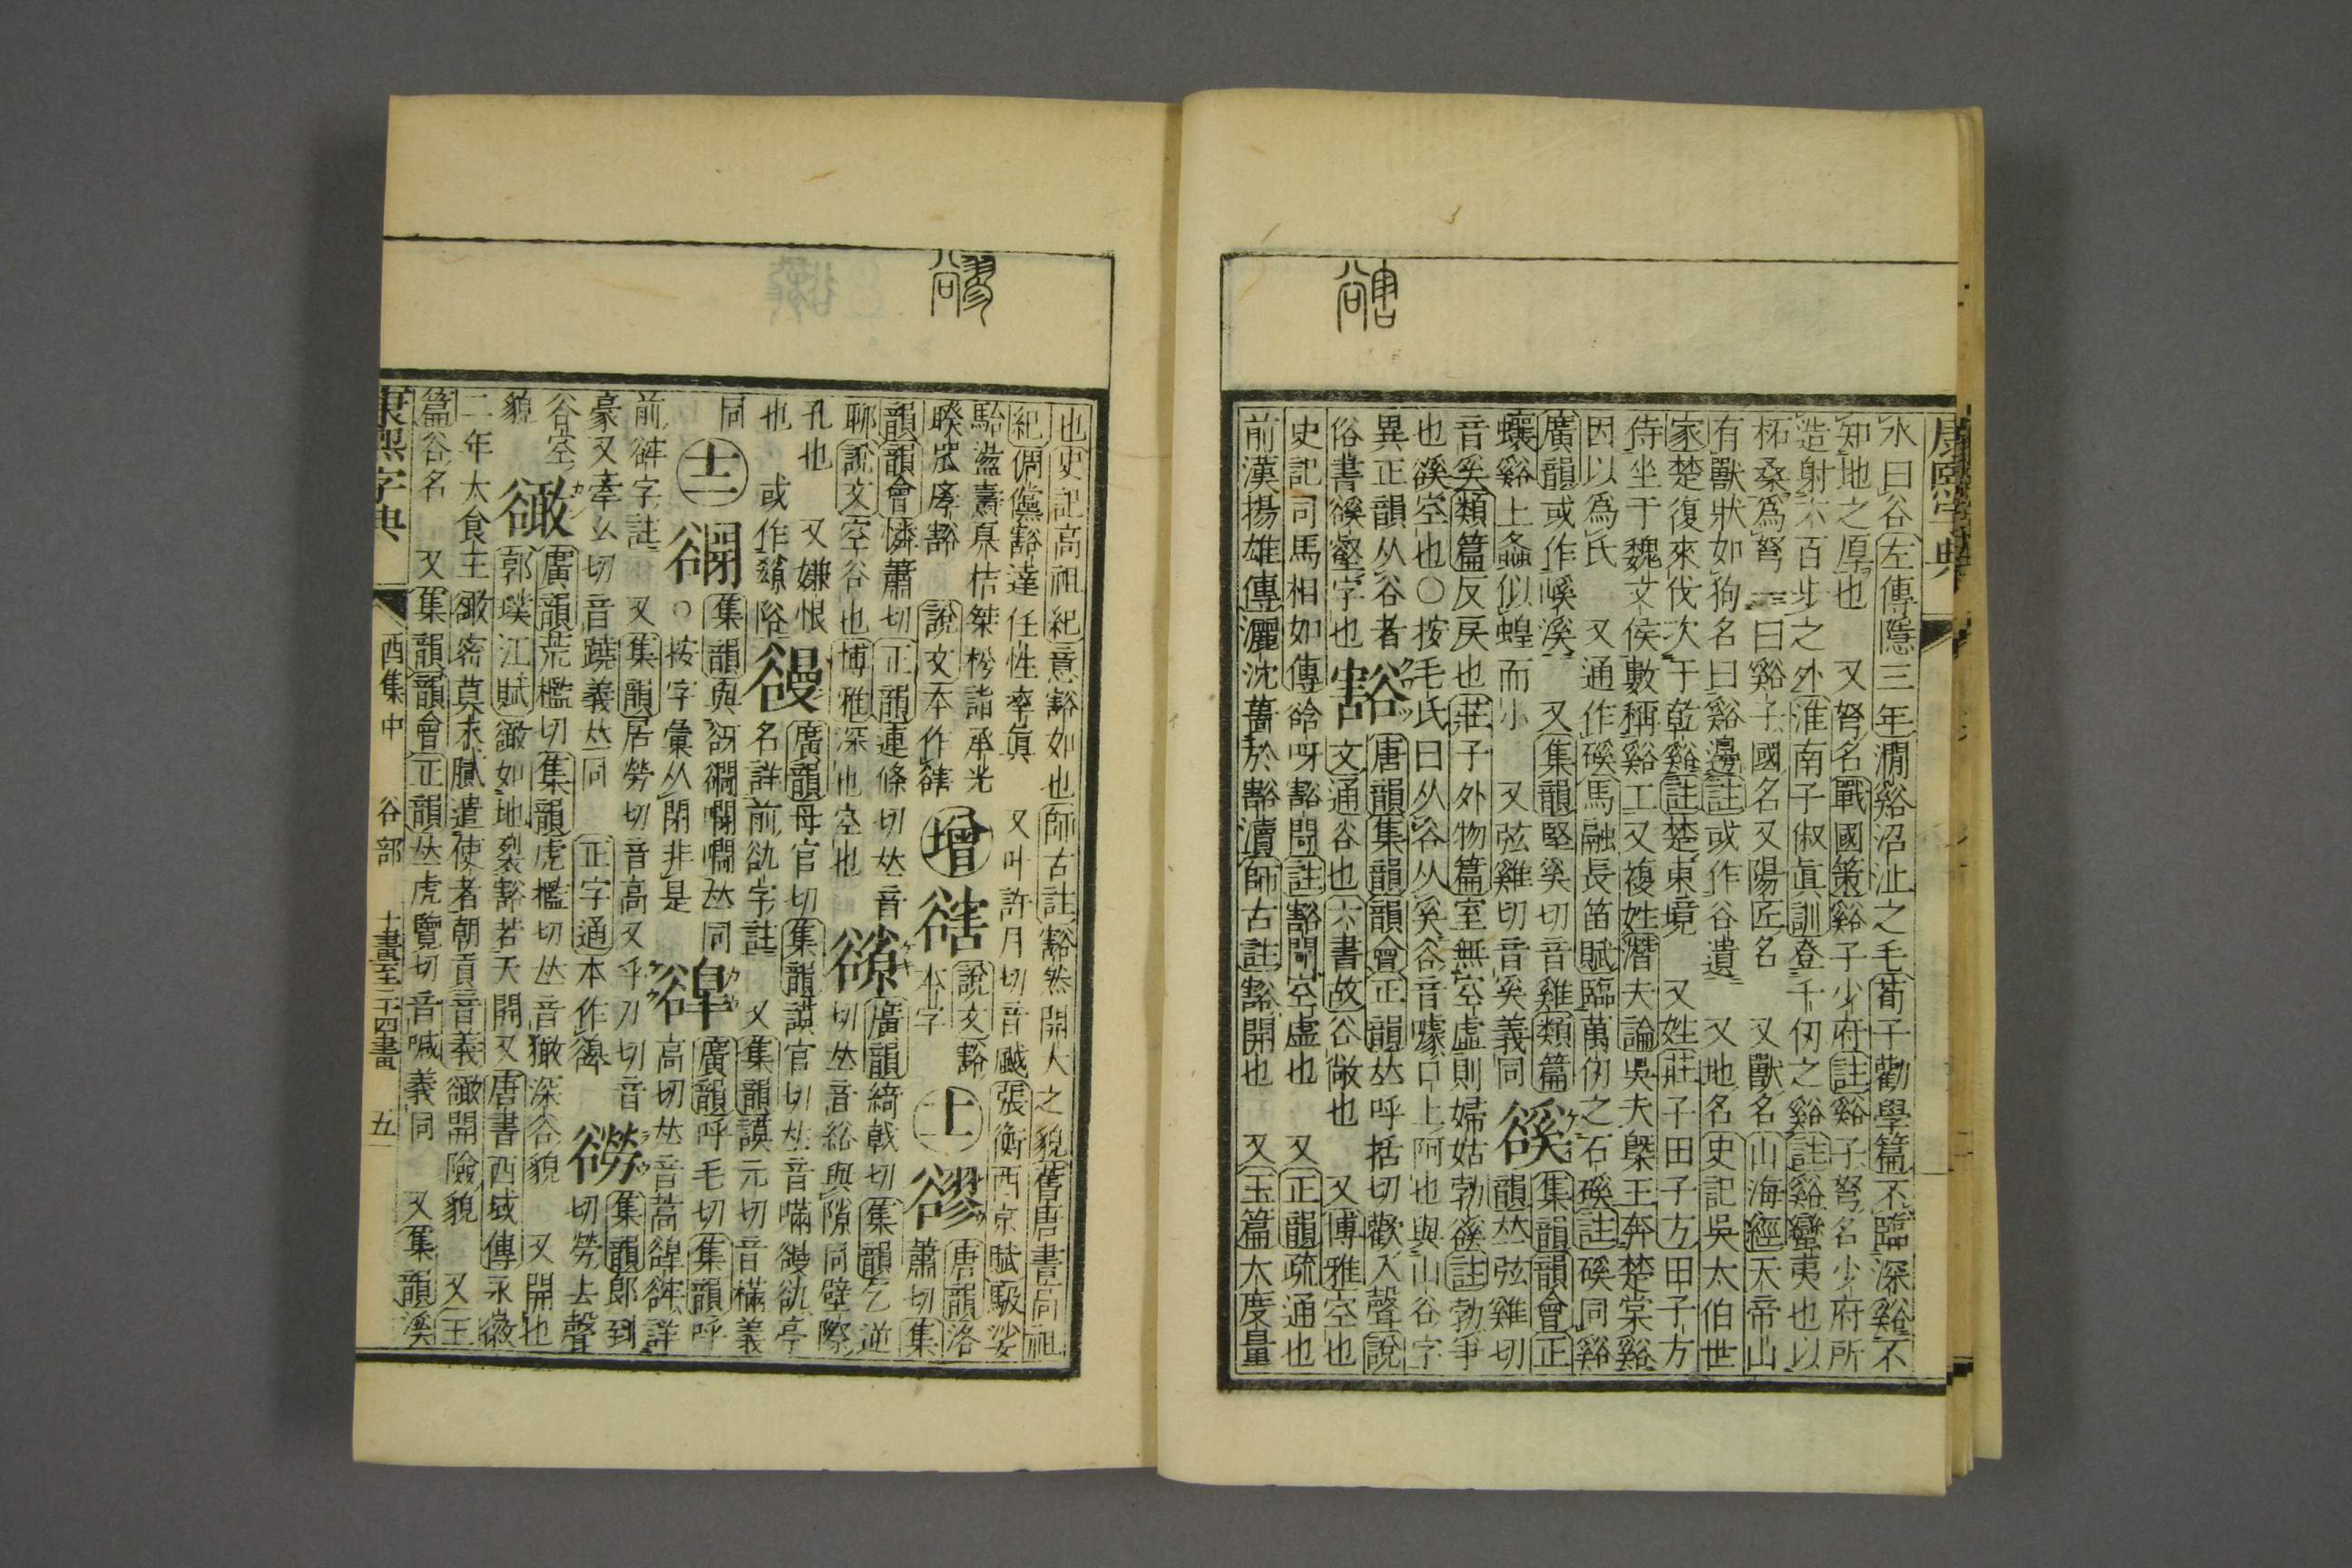 水曰谷左傳隱三年澗谿沼沚之毛荀子勸學篇不臨深谿不
知地之厚也 又弩名戰國策谿子少府註谿子弩名少府所
造射六百步之外淮南子俶眞訓登千仞之谿註谿蠻夷也以
柘桑爲弩一曰谿子國名又陽匠名 又獸名山海經天帝山
有獸狀如狗名曰谿邊註或作谷遺 又地名史記吳太伯世
家楚復來伐次于乾谿註楚東境 又姓莊子田子方田子方
侍坐于魏文侯數稱谿工又複姓潛夫論吳夫槩王奔楚棠谿
因以爲氏 又通作磎馬融長笛賦臨萬仞之石磎註磎同谿
廣韻或作嵠溪 又集韻堅奚切音雞類篇
蠰谿上螽似蝗而小 又弦雞切音奚義同 豀集韻韻會正
韻𠀤弦雞切
音奚類篇反戾也莊子外物篇室無空虛則婦姑勃豀註勃爭
也豀空也○按毛氏曰从谷从奚谷音噱口上阿也與山谷字
異正韻从谷者
俗書豀壑字也 豁唐韻集韻韻會正韻𠀤呼括切歡入聲說
文通谷也六書故谷敞也 又博雅空也
史記司馬相如傳谽呀豁閜註豁閜空虛也 又正韻疏通也
前漢揚雄傳灑沈菑於豁瀆師古註豁開也 又玉篇大度量
也史記高祖紀意豁如也師古註豁然開大之貌舊唐書高祖
紀倜儻豁達任性率眞 又叶許月切音颰張衡西京賦馺娑
駘盪燾奡桔桀枍詣承光
睽罛庨豁 說文本作䜁 增 䜁說文豁
本字 十一 豂唐韻洛
蕭切集
韻韻會憐蕭切正韻連條切𠀤音
聊說文空谷也博雅深也空也 𧯆廣韻綺戟切集韻乞逆
切𠀤音綌與隙同壁際
孔也 又嫌恨
也 或作𧮬𨻶 谩廣韻母官切集韻謨官切𠀤音瞞谩谻亭
名詳前谻字註 又集韻謨元切音樠義
同 十二 𧯘集韻與谺𧯋㦎憪𠀤同
○按字彙从閉非是 𧯌廣韻呼毛切集韻呼
高切𠀤音蒿𧯌谻詳
前谻字註 又集韻居勞切音高又乎刀切音
豪又牽幺切音蹺義𠀤同 正字通本作𧯌 𧯍集韻郎到
切勞去聲
谷空
貌 豃廣韻荒檻切集韻虎檻切𠀤音㺖深谷貌 又開也
郭璞江賦豃如地裂豁若天開又唐書西域傳永徽
二年大食王豃密莫末膩遣使者朝貢音義豃開險貌 又玉
篇谷名 又集韻韻會正韻𠀤虎覽切音喊義同 又集韻溪
康熙字典 酉集中 谷部 十畫至二十四畫 五